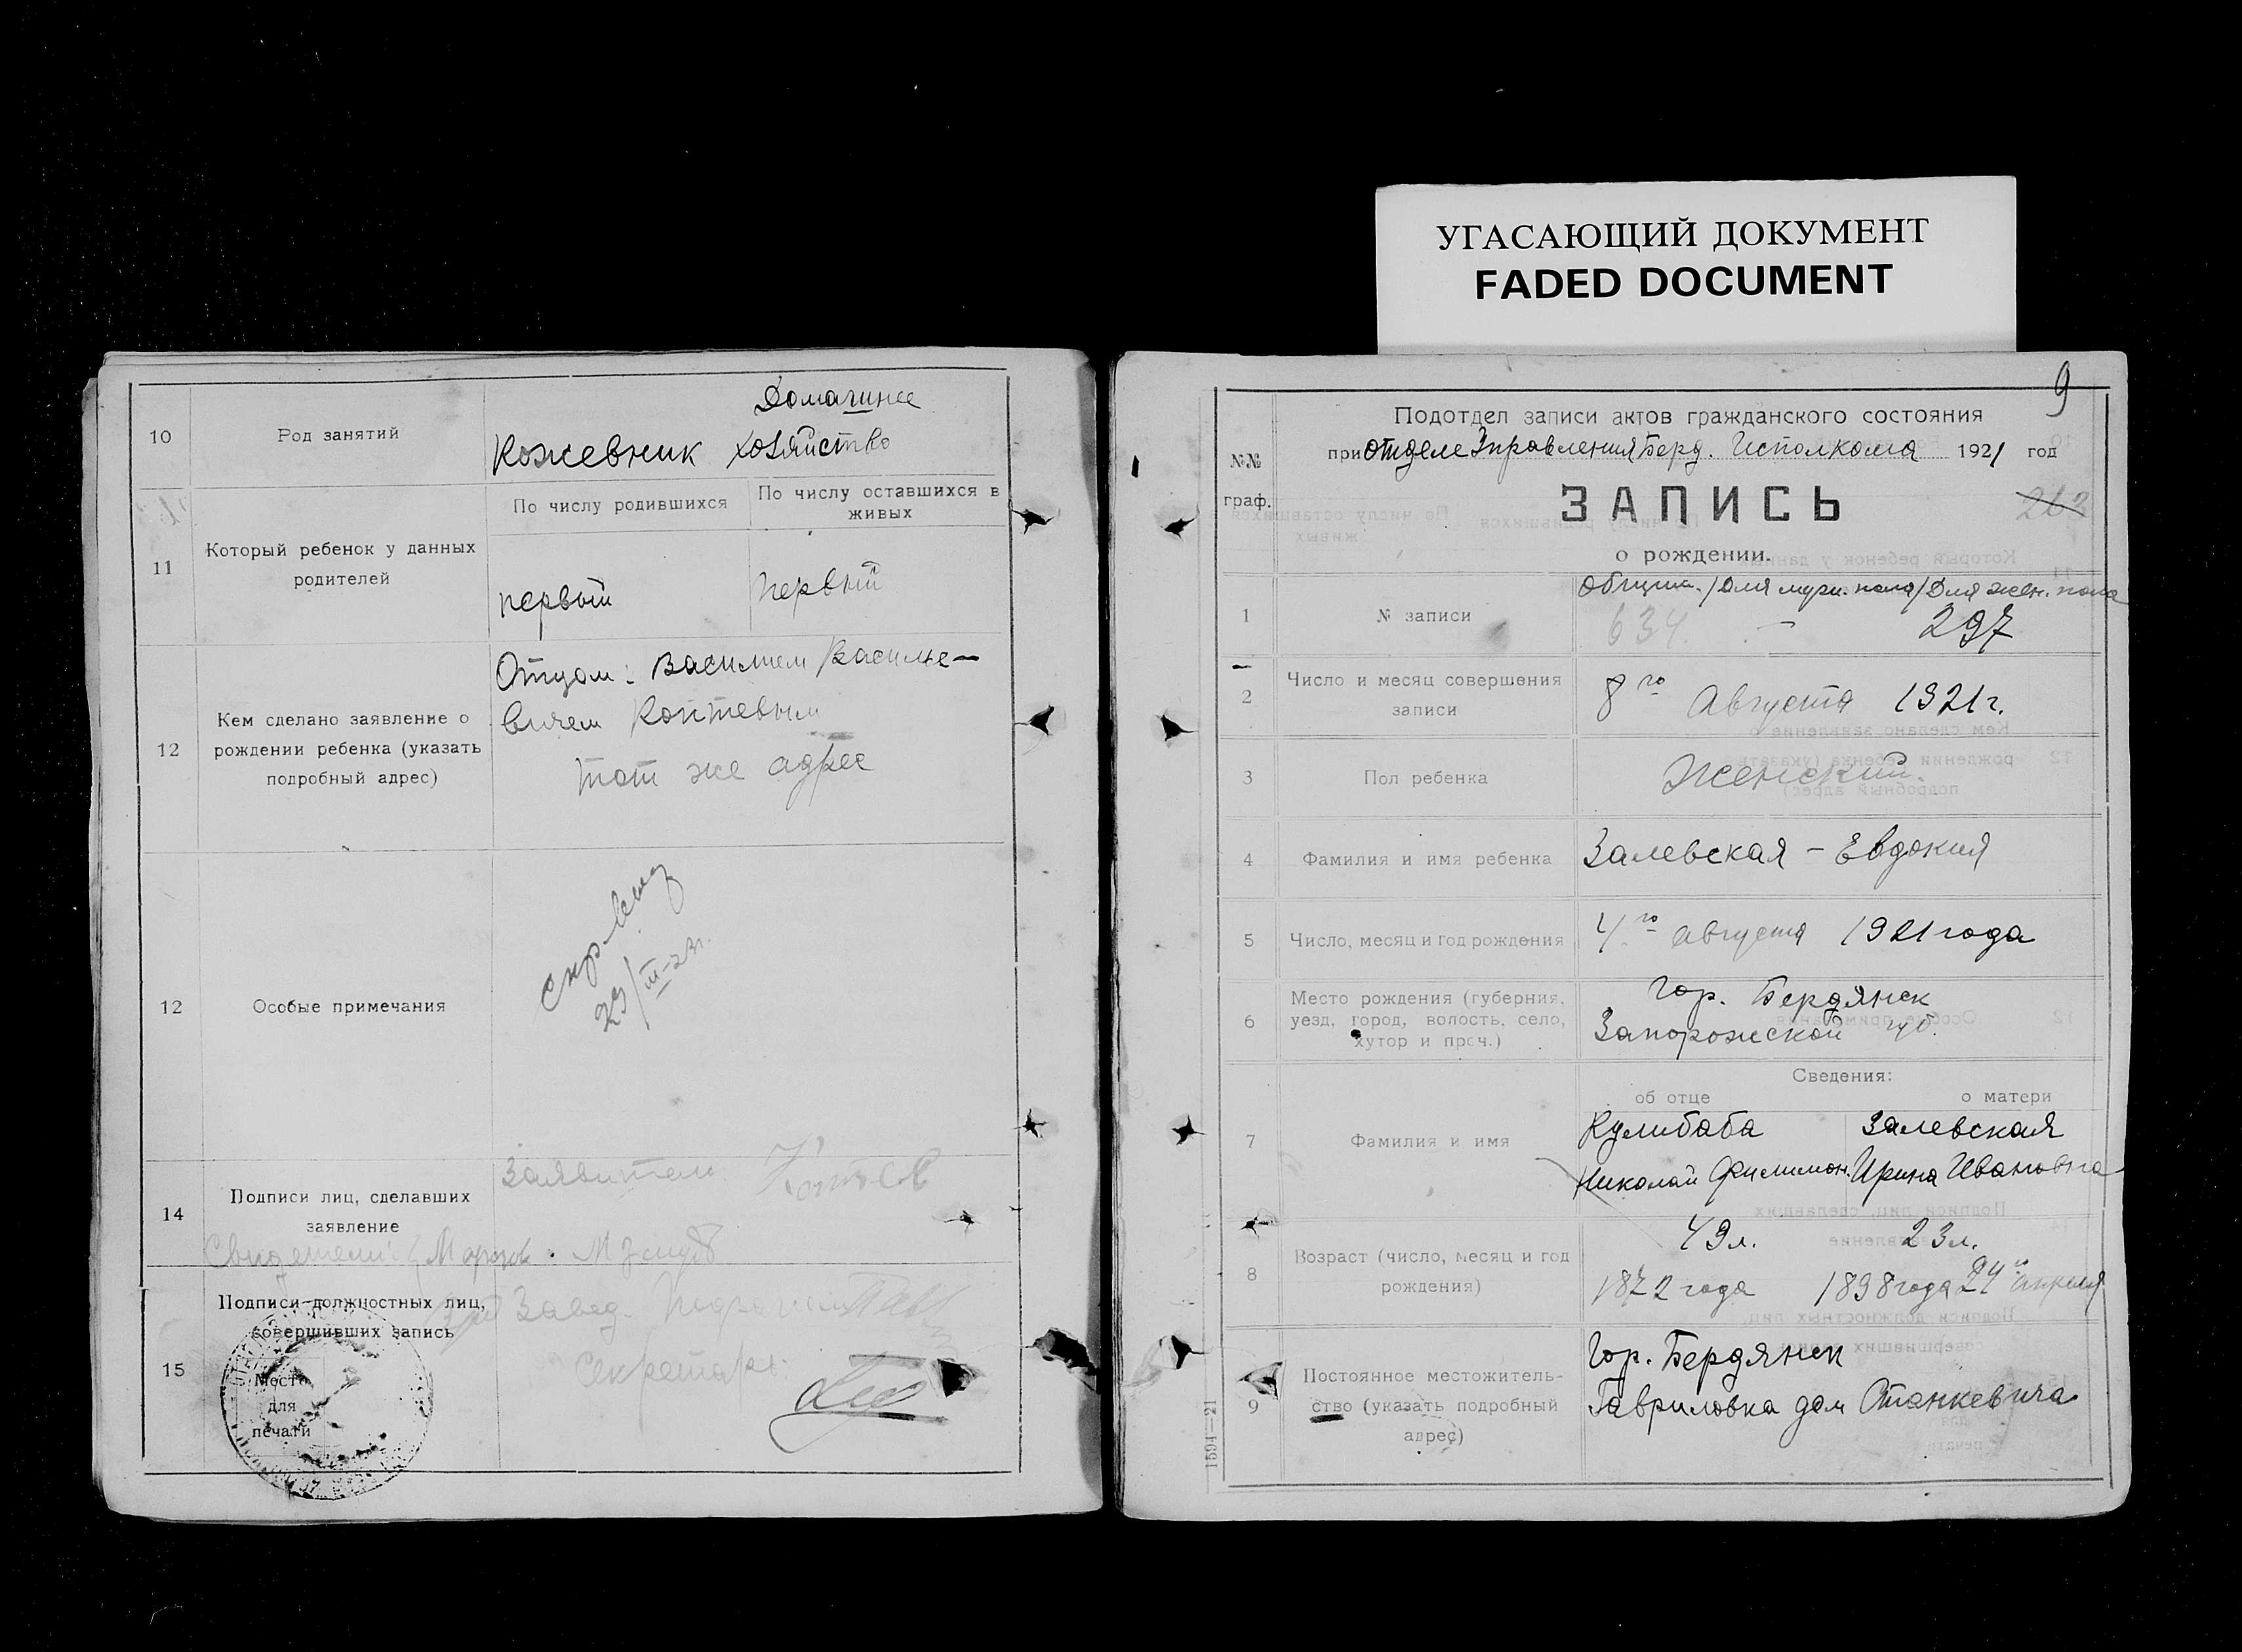 УГАСАЮЩИЙ ДОКУМЕНТ
FADED DOCUMENT
10
Род занятий
Кожевник
Домашнее
хозяйство
11
Который ребенок у данных
родителей
По числу родившихся
По числу оставшихся в
живых
первый
первый
12
Кем сделано заявление о
рождении ребенка (указать
подробный адрес)
Отцом: Василием Василье-
вичем Коптевым
тот же адрес
12
Особые примечания
29/III-23г.
14
Подписи лиц, сделавших
заявление
Заявители
Свидетели:
15
Подписи должностных лиц,
совершивших запись
Место
для
печати
Завед.
Секретарь
9
№№
граф.
Подотдел записи актов гражданского состояния
при Отделе Управления Берд. Исполкома 1921 год
ЗАПИСЬ
263
о рождении.
1
№ записи
Общий. / Для муж. пола / Для жен. пола
634. — 297
2
Число и месяц совершения
записи
8го Августа 1921 г.
3
Пол ребенка
Женский.
4
Фамилия и имя ребенка
Залевская - Евдокия
5
Число, месяц и год рождения
4го августа 1921 года
6
Место рождения (губерния,
уезд, город, волость, село,
хутор и проч.)
Гор. Бердянск
Запорожской губ.
Сведения:
об отце
о матери
7
Фамилия и имя
Кулибаба
Николай Филимон.
Залевская
Ирина Ивановна
8
Возраст (число, месяц и год
рождения)
49 л.
1872 года
23 л.
1898 года 24го апреля
9
Постоянное местожитель-
ство (указать подробный
адрес)
Гор. Бердянск
Гавриловка дом Станкевича
1594—21